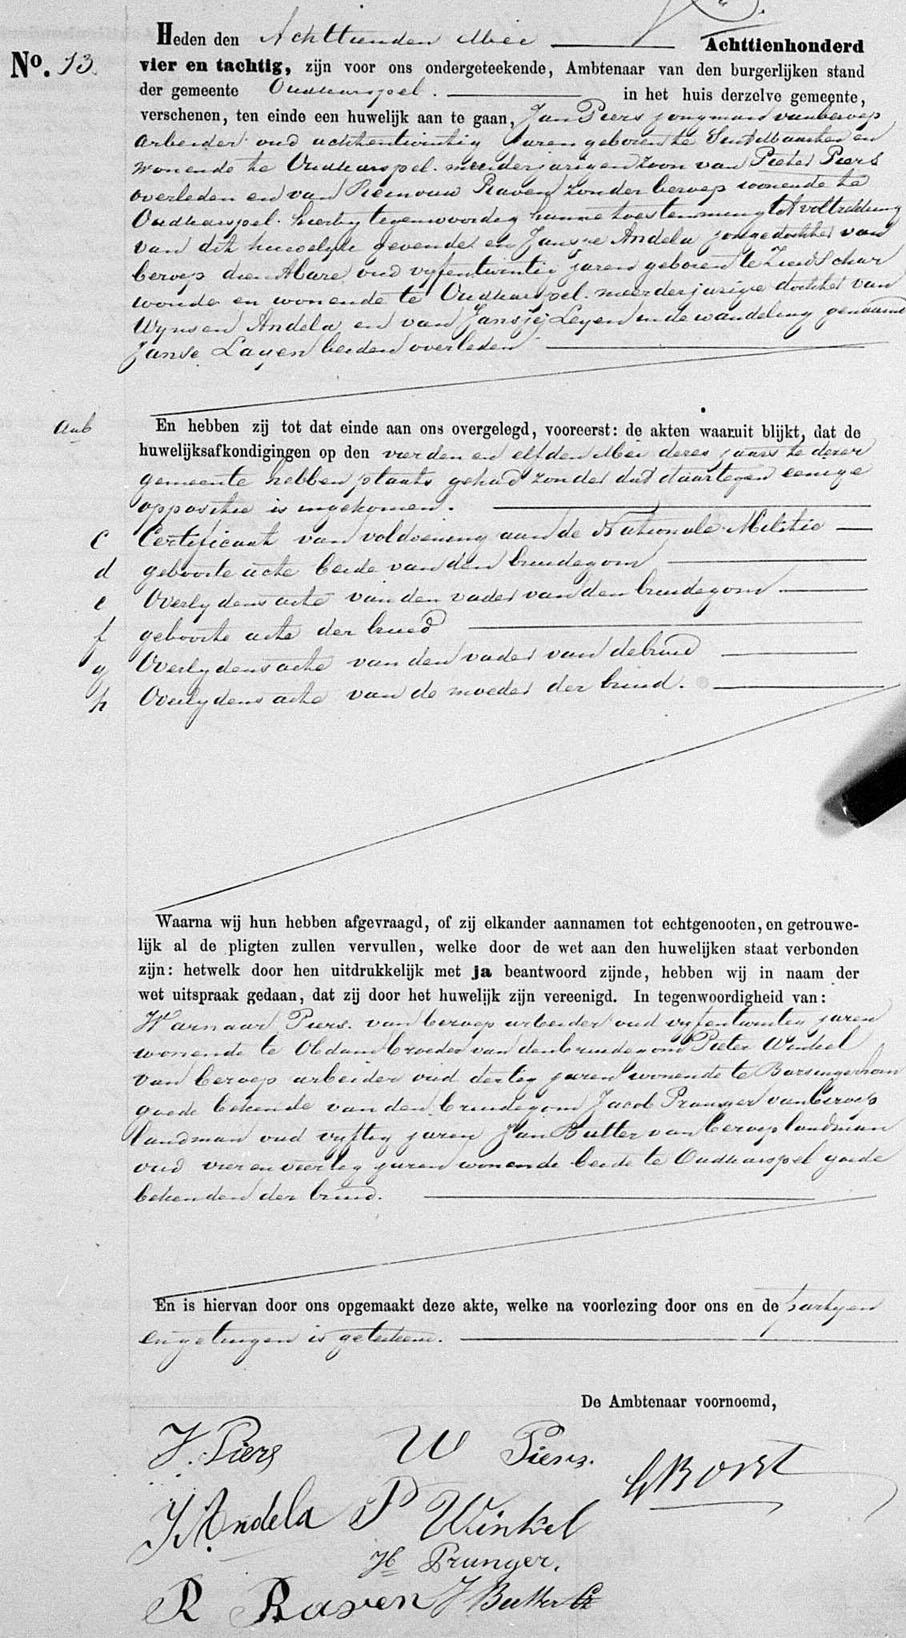 Heden den Achttienden Mei Achttienhonderd
No. 13.
vier en tachtig, zijn voor ons ondergeteekende, Ambtenaar van den burgerlijken stand
der gemeente Oudkarspel. in het huis derzelve gemeente,
verschenen, ten einde een huwelijk aan te gaan, Jan Piers jongman van beroep
arbeider oud achtentwintig Jaren geboren te Sint Maarten en
wonende te Oudkarspel. meerderjarigen zoon van Pieter Piers
overleden en van Reinouw Raven zonder beroep wonende te
Oudkarspel. hierby tegenwoordig hunne toestemming tot voltrekking
van dit huwelyk gevende en Jansje Andela jongedochter van
beroep dienstbare oud vyfentwintig jaren geboren te
wonende te Oudkarspel. meerderjarige dochter van
Wynsen Andela en van Jansje Leyen in de wandeling genaamd
Janse Layen beiden overleden
En hebben zij tot dat einde aan ons overgelegd, vooreerst: de akten waaruit blijkt, dat de
aub
huwelijksafkondigingen op den vierden en elfden Mei dezes jaars te dezer
gemeente hebben plaats gehad zonder dat daartegen eenige
oppositie is ingekomen.
c Certificaat van voldoening aan de Nationale Militie
d geboorte acte beide van den bruidegom
e Overlydens acte van den vader van den bruidegom
f geboorte acte der bruid
g Overlydens acte van den vader van de bruid
h Overlydens acte van de moeder der bruid.
Waarna wij hun hebben afgevraagd, of zij elkander aannamen tot echtgenooten, en getrouwe-
lijk al de pligten zullen vervullen, welke door de wet aan den huwelijken staat verbonden
zijn: hetwelk door hen uitdrukkelijk met ja beantwoord zijnde, hebben wij in naam der
wet uitspraak gedaan, dat zij door het huwelijk zijn vereenigd. In tegenwoordigheid van:
Warnaar Piers. van beroep arbeider oud vyfentwintig jaren
wonende te Obdam broeder van den bruidegom Pieter Winkel
van beroep arbeider oud dertig jaren wonende te Barsingerhorn
goede bekende van den bruidegom Jacob Pranger van beroep
landman oud vyftig jaren Jan Butter van beroep landman
oud vier en veertig jaren wonende beide te Oudkarspel goede
bekenden der bruid.
En is hiervan door ons opgemaakt deze akte, welke na voorlezing door ons en de partyen
en getuigen is getekent.
De Ambtenaar voornoemd,
J. Piers W Piers.
G Borst
J Andela P Winkel
Pranger.
R Raven J Butter